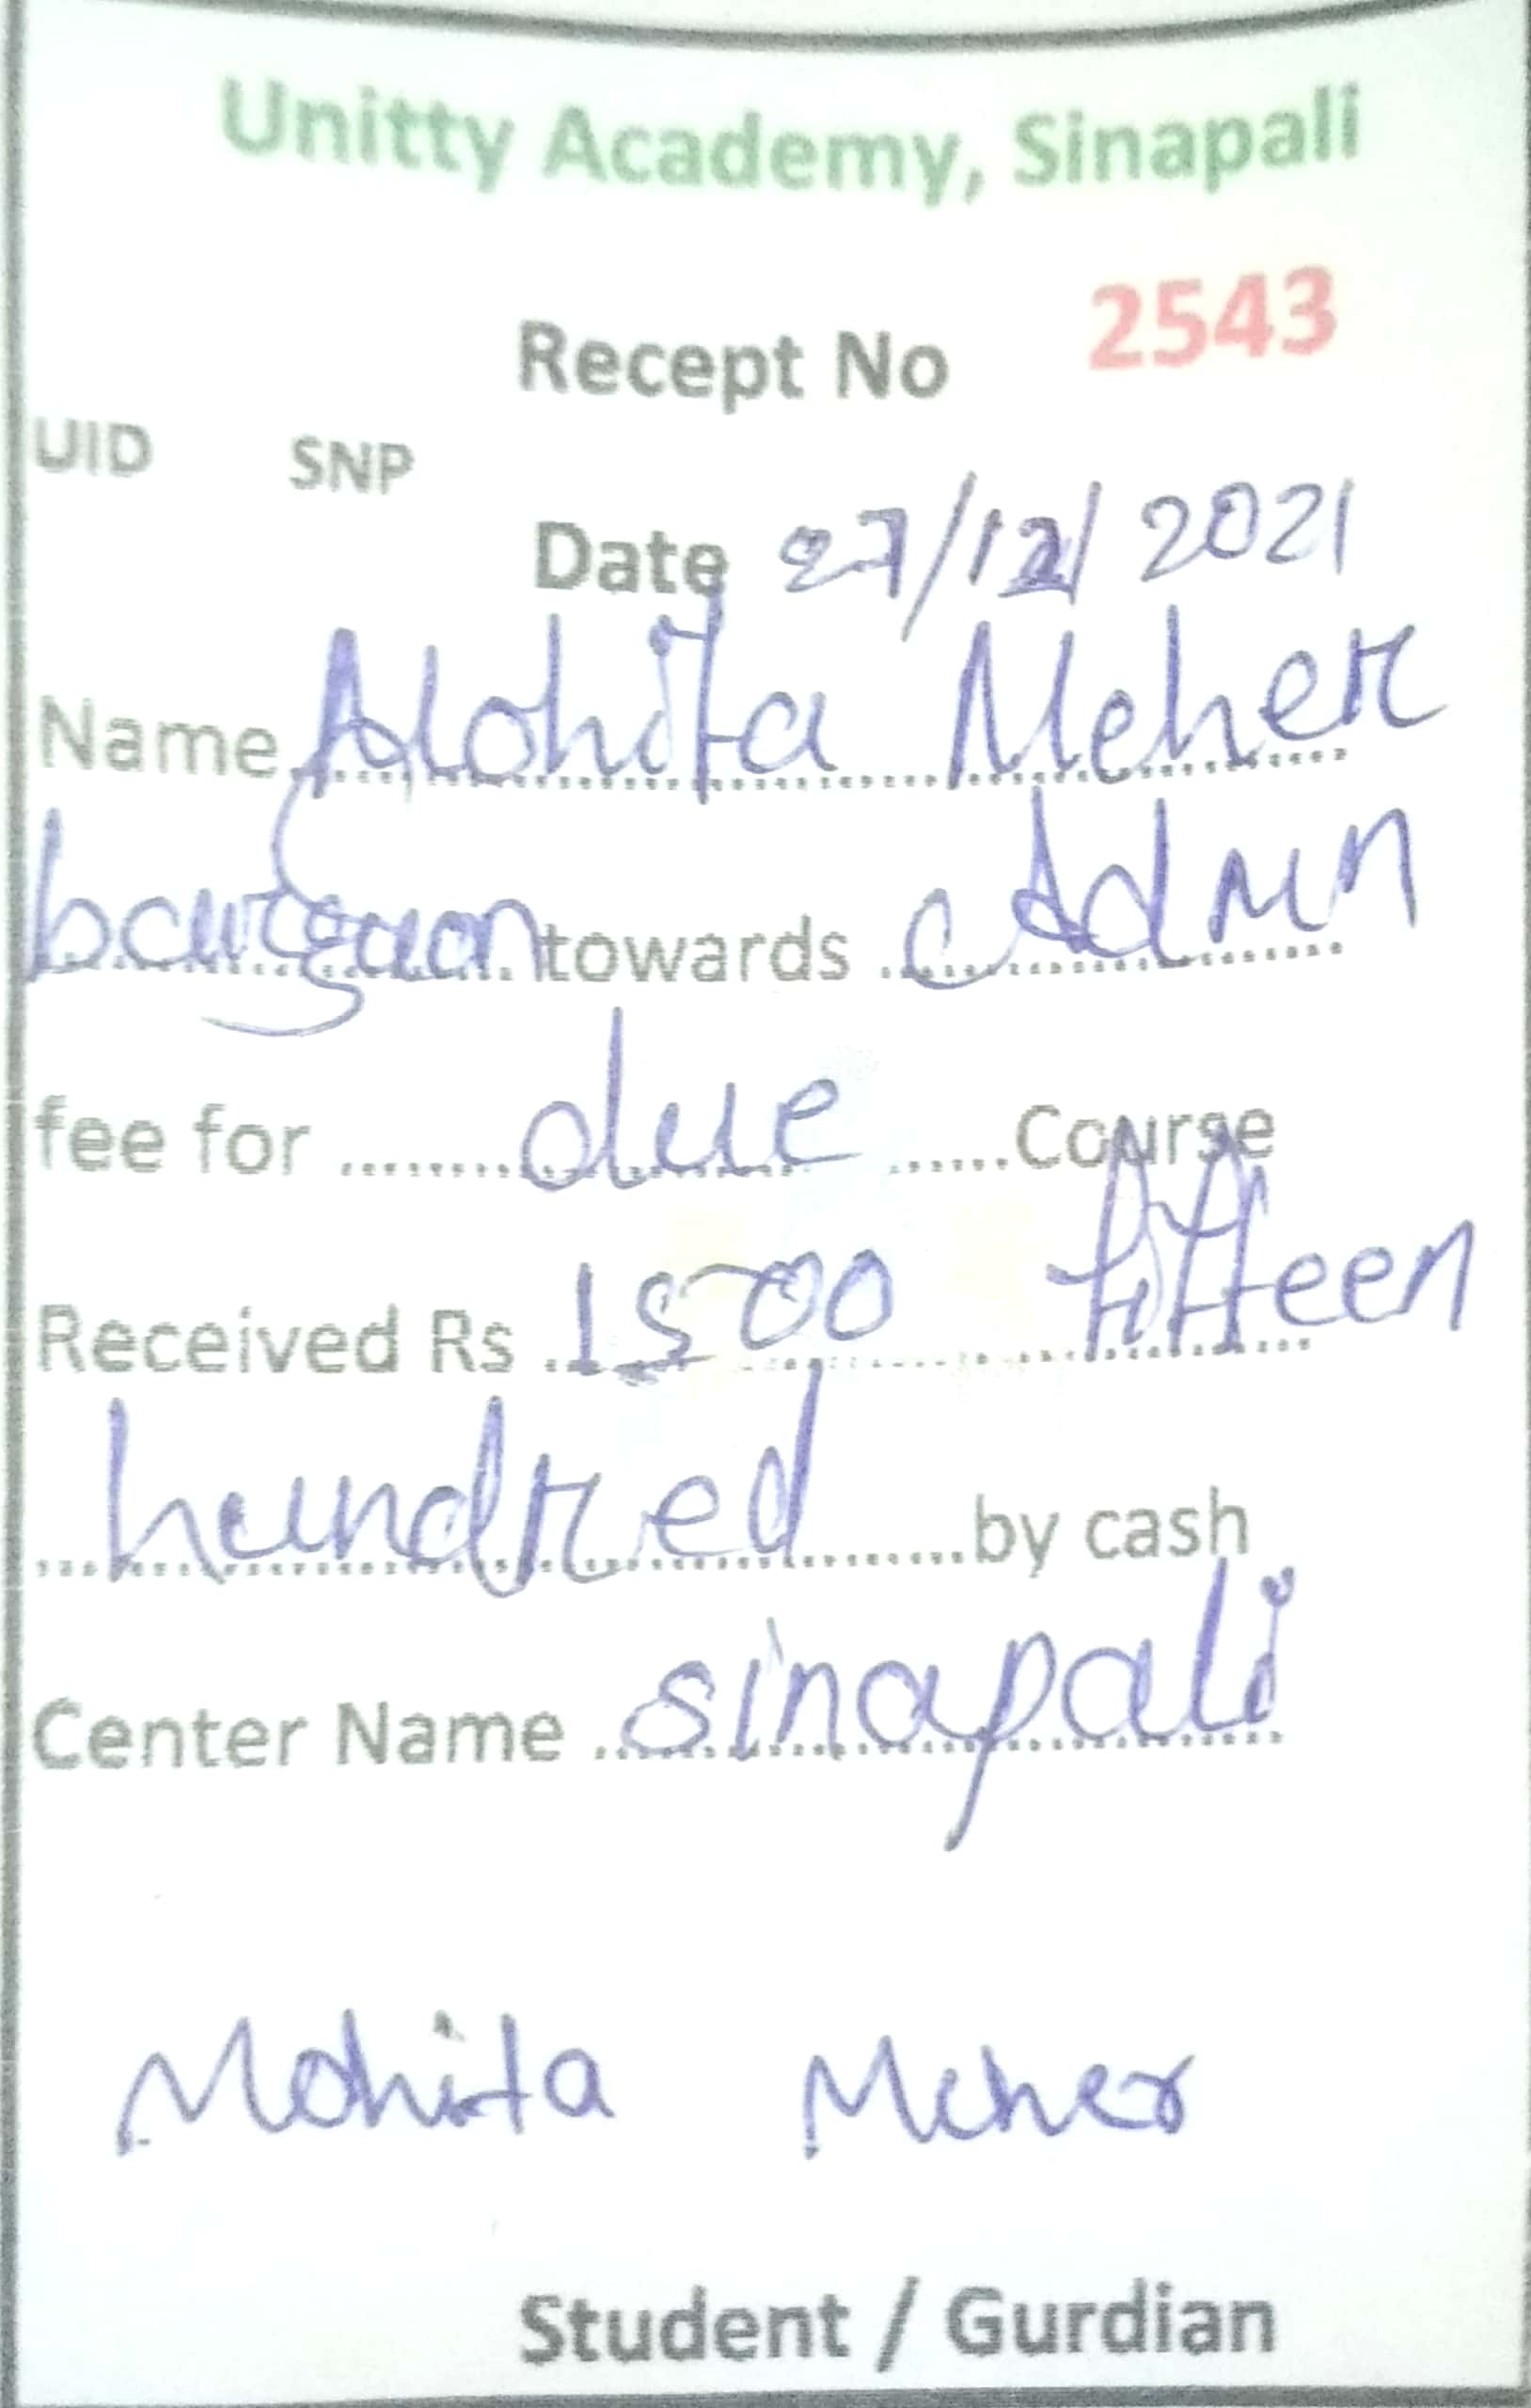 Unitty Academy, Sinapali
Recept No 2543
UID SNP
Date 27/12/2021
Name Mohita Meher
bargaon towards Admn
fee for due Course
Received Rs 1500 fifteen
hundred by cash
Center Name sinapali
Mohita Meher
Student / Gurdian